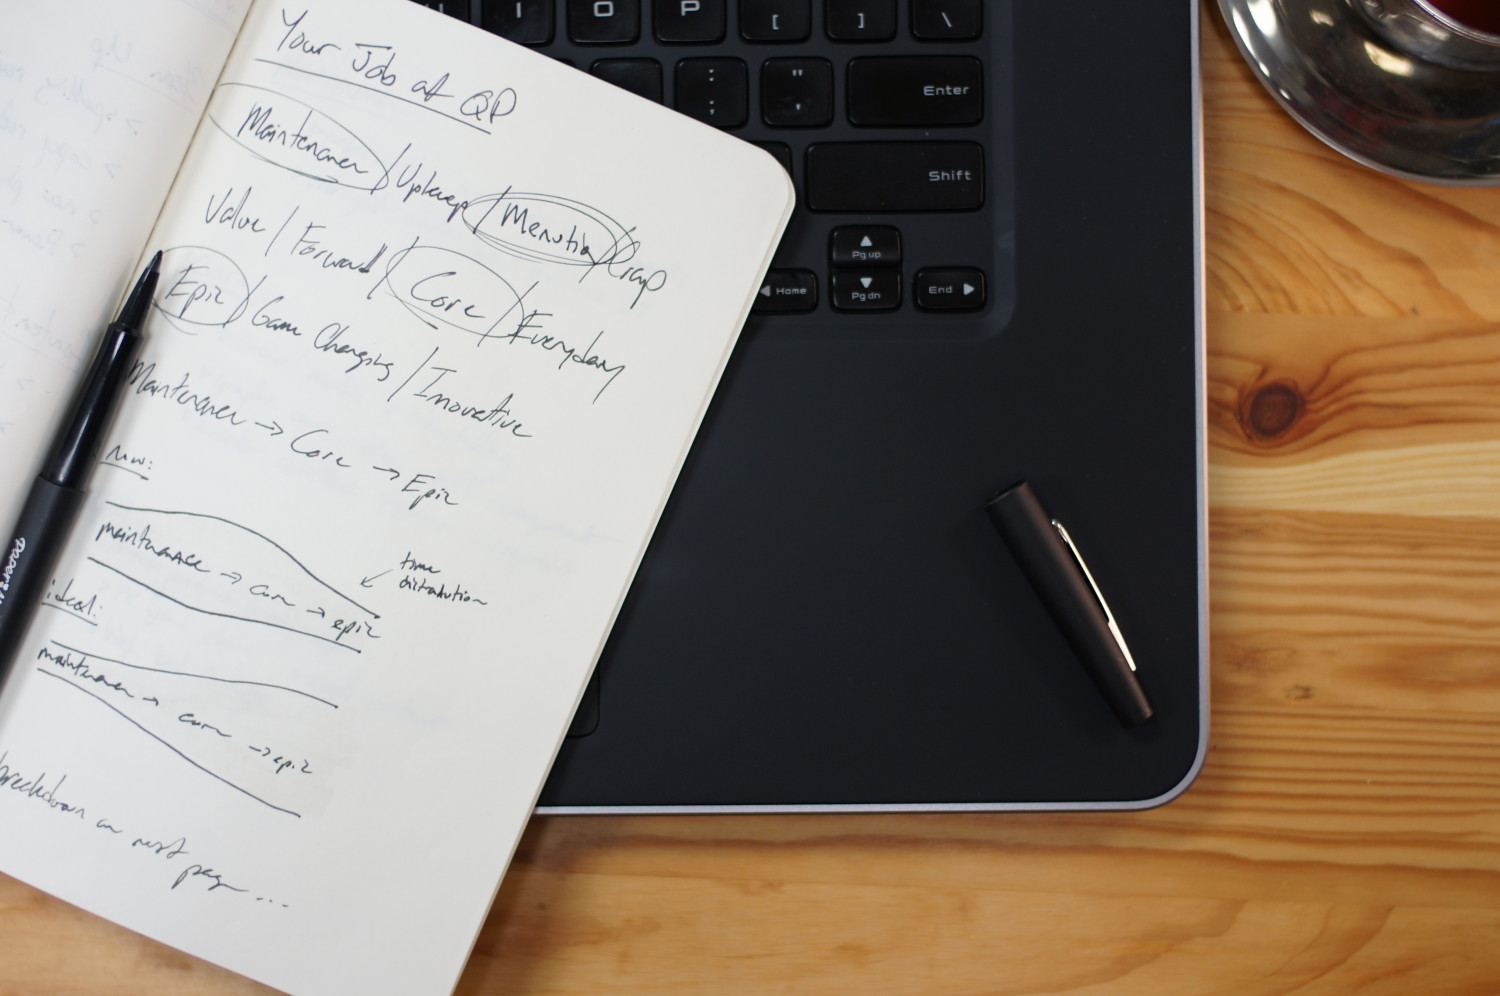 Your Job at QP
Maintenance / Upkeep / Menutia / Crap
Value / Forward / Core / Everyday
Epic / Game Changing / Inovative
Maintenance → Core → Epic
now:
maintenance → core → epic
time
distribution
ideal:
maintenance → core → epic
breakdown on next
page ...
I O P [ ] \
: ;
" '
Enter
Shift
Pg up
Home
Pg dn
End